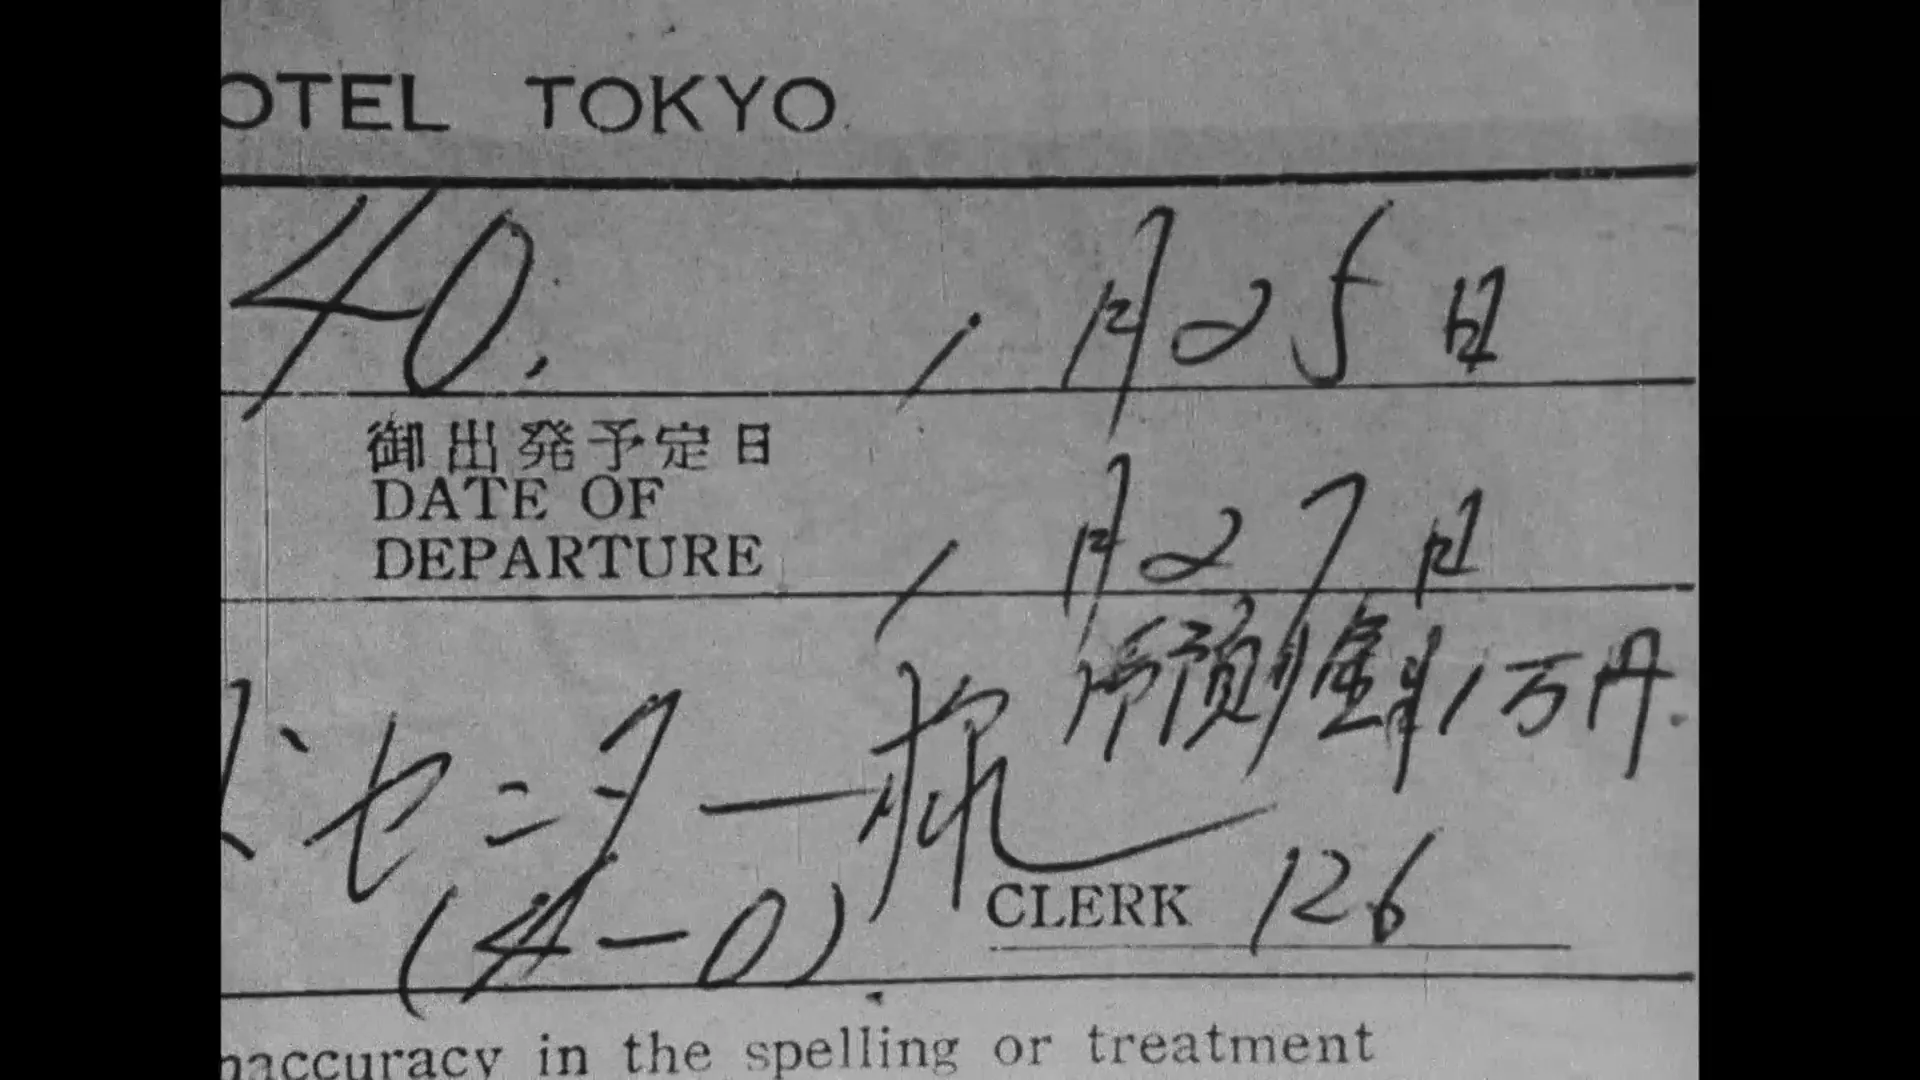 OTEL TOKYO
40. 1月25日
御出発予定日
DATE OF
DEPARTURE
1月27日
預り金 1万円
センター
(4-0)
CLERK 126
naccuracy in the spelling or treatment